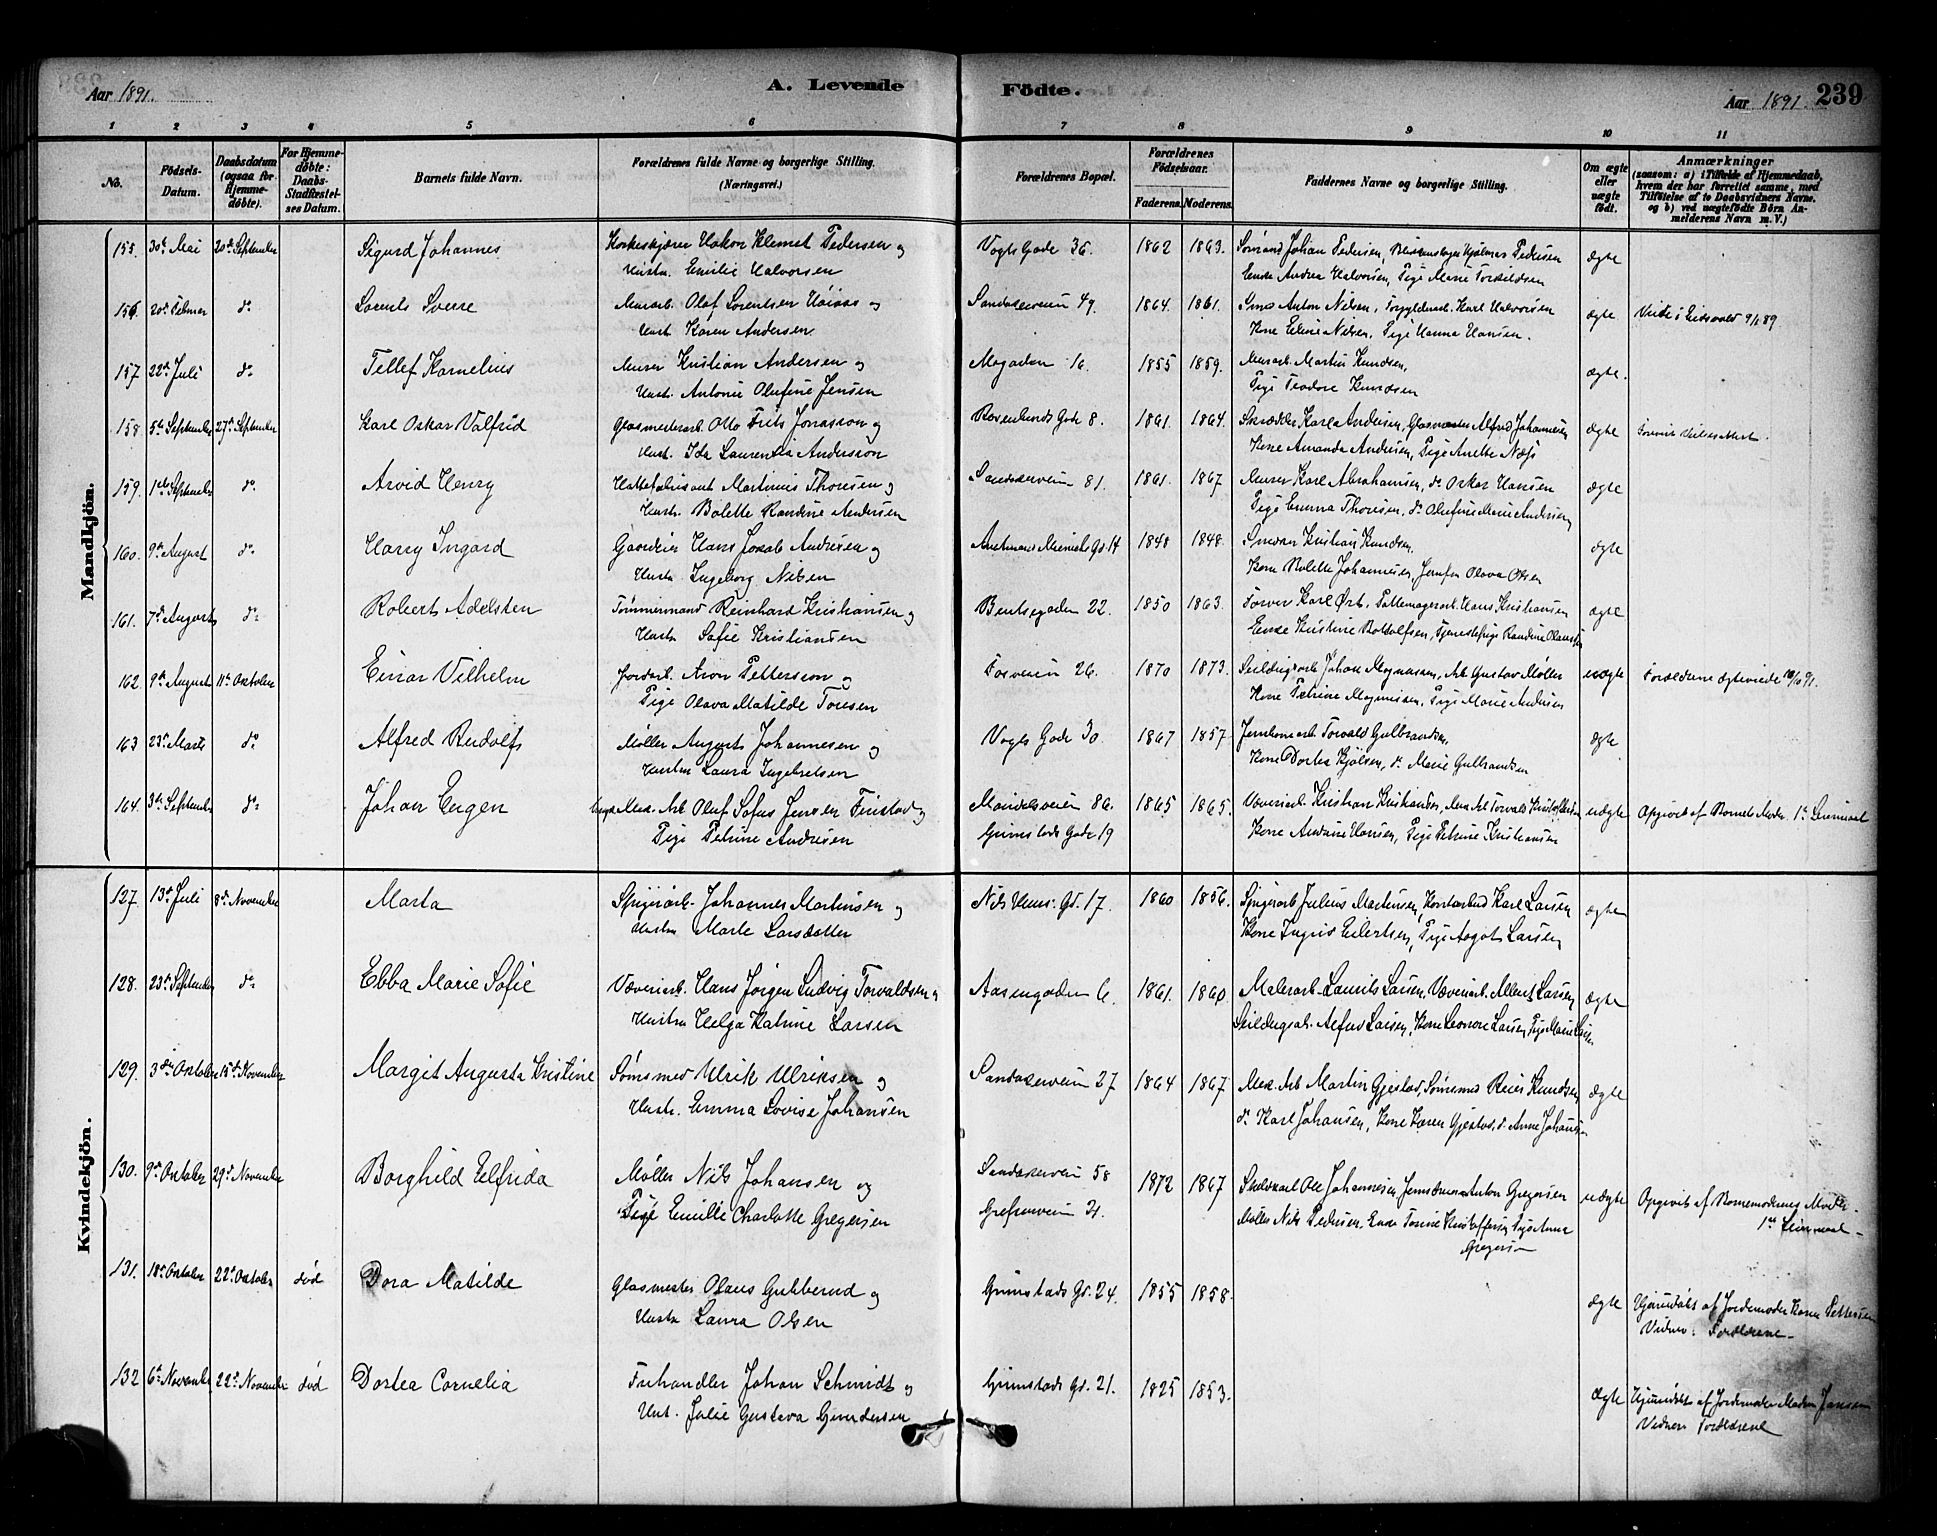 Aar 1891.
A. Levende
Födte.
Aar 1891.
239
1 2 3 4 5 6 7 8 9 10 11
No.
Födsels-Datum.
Daabsdatum (ogsaa for Hjemmedøbte).
For Hjemmedøbte: Daabs-Stadfæstelses Datum.
Barnets fulde Navn.
Forældrenes fulde Navne og borgerlige Stilling. (Næringsvei.)
Forældrenes Bopæl.
Forældrenes Fødselsaar.
Faderens. Moderens.
Faddernes Navne og borgerlige Stilling.
Om ægte eller uægte født.
Anmærkninger (saasom: a) i Tilfælde af Hjemmedaab, hvem der har forrettet samme, med Tilføielse af to Daabsvidners Navne, og b) ved uægtefødte Børn Anmelderens Navn m. V.)
Mandkjön.
155. 30te Mai 20de September Sigurd Johannes
Klemet Pedersen og
Hustr. Emilie Halvorsen
Vogts Gade 36. 1862 1863.
Johan Pedersen, Hjalmar Pedersen
Enke Andrea Halvorsen, Pige Marie
ægte
156. 20de Februar do Lorents Sverre
Murarb. Olaf Lorentsen og
Hustr. Karen Andersen
Sandakerveien 49. 1864. 1861.
Anton Nilsen, Karl Halvorsen
Kone Elene Nilsen, Pige Hanna Hansen.
ægte Viede i Eidsvold
157 22de Juli do Tellef Kornelius
Murer Kristian Andersen og
Hustr. Antonie Olufine Jensen
Mogaden 16. 1855 1859.
Murarb. Martin Knudsen,
Pige Teodore Knudsen
ægte.
158. 5te September 27de September Karl Oskar Valfrid
Glasmesterarb. Otto Frits Jonasson og
Hustr. Ida Laurentia Andersson
Gade 8. 1861. 1864.
Skrædder Karl Andersen, Alfred Johannesen
Kone Amanda Andersen, Pige Anette Næss
ægte
159. 1ste September do. Arvid Henry
Martinius Thoresen og
Hustr. Bolette Randine Andersen
Sandakerveien 81. 1861. 1867
Murer Karl Abrahamsen, do Oskar Hansen
Pige Emma Thoresen, do Olufine Marie Andersen
ægte
160. 9de August do. Harry Ingard
Gaardeier Hans Jakob Andersen og
Hustr. Ingeborg Nilsen
Gd. 14 1848 1848.
Kristian Knudsen,
Kone Bolette Johannesen, Jomfru Olava Olsen
ægte
161. 7de August do. Robert Adelsten
Tømmermand Reinhard Kristiansen og
Hustr. Sofie Kristiansen
Bentsegaden 22. 1850 1863.
Farver Karl Ørb. Hans Kristiansen
Enke Kristine Rolfsen, Tjenestepige Randine
ægte
162. 9de August 11te Oktober Einar Vilhelm
Jordarb. Aron Pettersson og
Pige Olava Matilde Toresen
Torvveien 26. 1870 1873.
Johan Magnussen, Arb. Gustav Møller
Kone Petrine Magnussen, Pige Marie Andersen
uægte Forældrene ægteviede 10/10 91.
163 23de Marts do Alfred Rudolf
Møller August Johannesen og
Hustru Laura Ingebretsen
Vogts Gade 30. 1867 1857.
Torvald Gulbrandsen,
Kone Dortea Kjølsen, do Marie Gulbrandsen
ægte
164. 3de September do. Johan Eugen
Mek. Arb. Oluf Sofus Jensen Finstad og
Pige Petrine Andresen
Maridalsveien 86. 1865 1865.
Grimstads Gade 19
Væveriarb. Kristian Kristiansen, Arb. Torvald
Kone Andrine Hansen, Pige Petrine Kristiansen
uægte Opgivet af Barnets Moder. 1ste Leiermaal
Kvindekjön.
127. 13de Juli 8de November Marta
Spigerarb. Johannes Martinsen og
Hustru Marte Larsdatter
Nils Gd. 17. 1860 1856.
Spigerarb. Julius Martinsen, Karl Larsen
Kone Ingrid Eilertsen, Pige Aagot Larsen
ægte
128. 23de September do Ebba Marie Sofie
Væveriarb. Hans Jørgen Ludvig Torvaldsen og
Hustru Helga Katrine Larsen
Aasengaden 6. 1861. 1860.
Malerarb. Laurits Larsen, Væveriarb. Albert Larsen,
Alfred Larsen, Kone Leonore Larsen, Pige Marie Larsen
ægte
129. 3die Oktober 15de November Margit Augusta Kristine
Sømsmed Ulrik Ulriksen og
Hustr. Emma Lovise Johansen
Sandakerveien 27 1864 1867
Mek. Arb. Martin Gjestad, Sømsmed Knudsen,
do Karl Johansen, Kone Karen Gjestad, do Anne Johansen
ægte
130. 9de Oktober 29de November Borghild Elfrida
Møller Nils Johansen og
Pige Emilie Charlotte Gregersen
Sandakerveien 58 1872 1867
Grefsenveien 21.
Ole Johannesen, Anton Gregersen
Møller Nils Pedersen, Enke Kristoffersen, Pige Anna
Gregersen
uægte Opgivet af Barnemoderens Moder.
1ste Leiermaal
131. 18de Oktober 22de Oktober død Dora Matilde
Glasmester Olaus Gubberud og
Hustr. Laura Olsen
Grimstads Gd. 24. 1855 1858.
ægte Hjemmedøbt af Jordemoder Karen Pettersen
Vidner: Forældrene
132 6te November 22de November død Dortea Cornelia
Johan Schmidt og
Hust. Julie Gustava
Grimstads Gd. 21. 1825 1853.
Ægte Hjemmedøbt af Jordemoder Madam Jansen
Vidner Forældrene